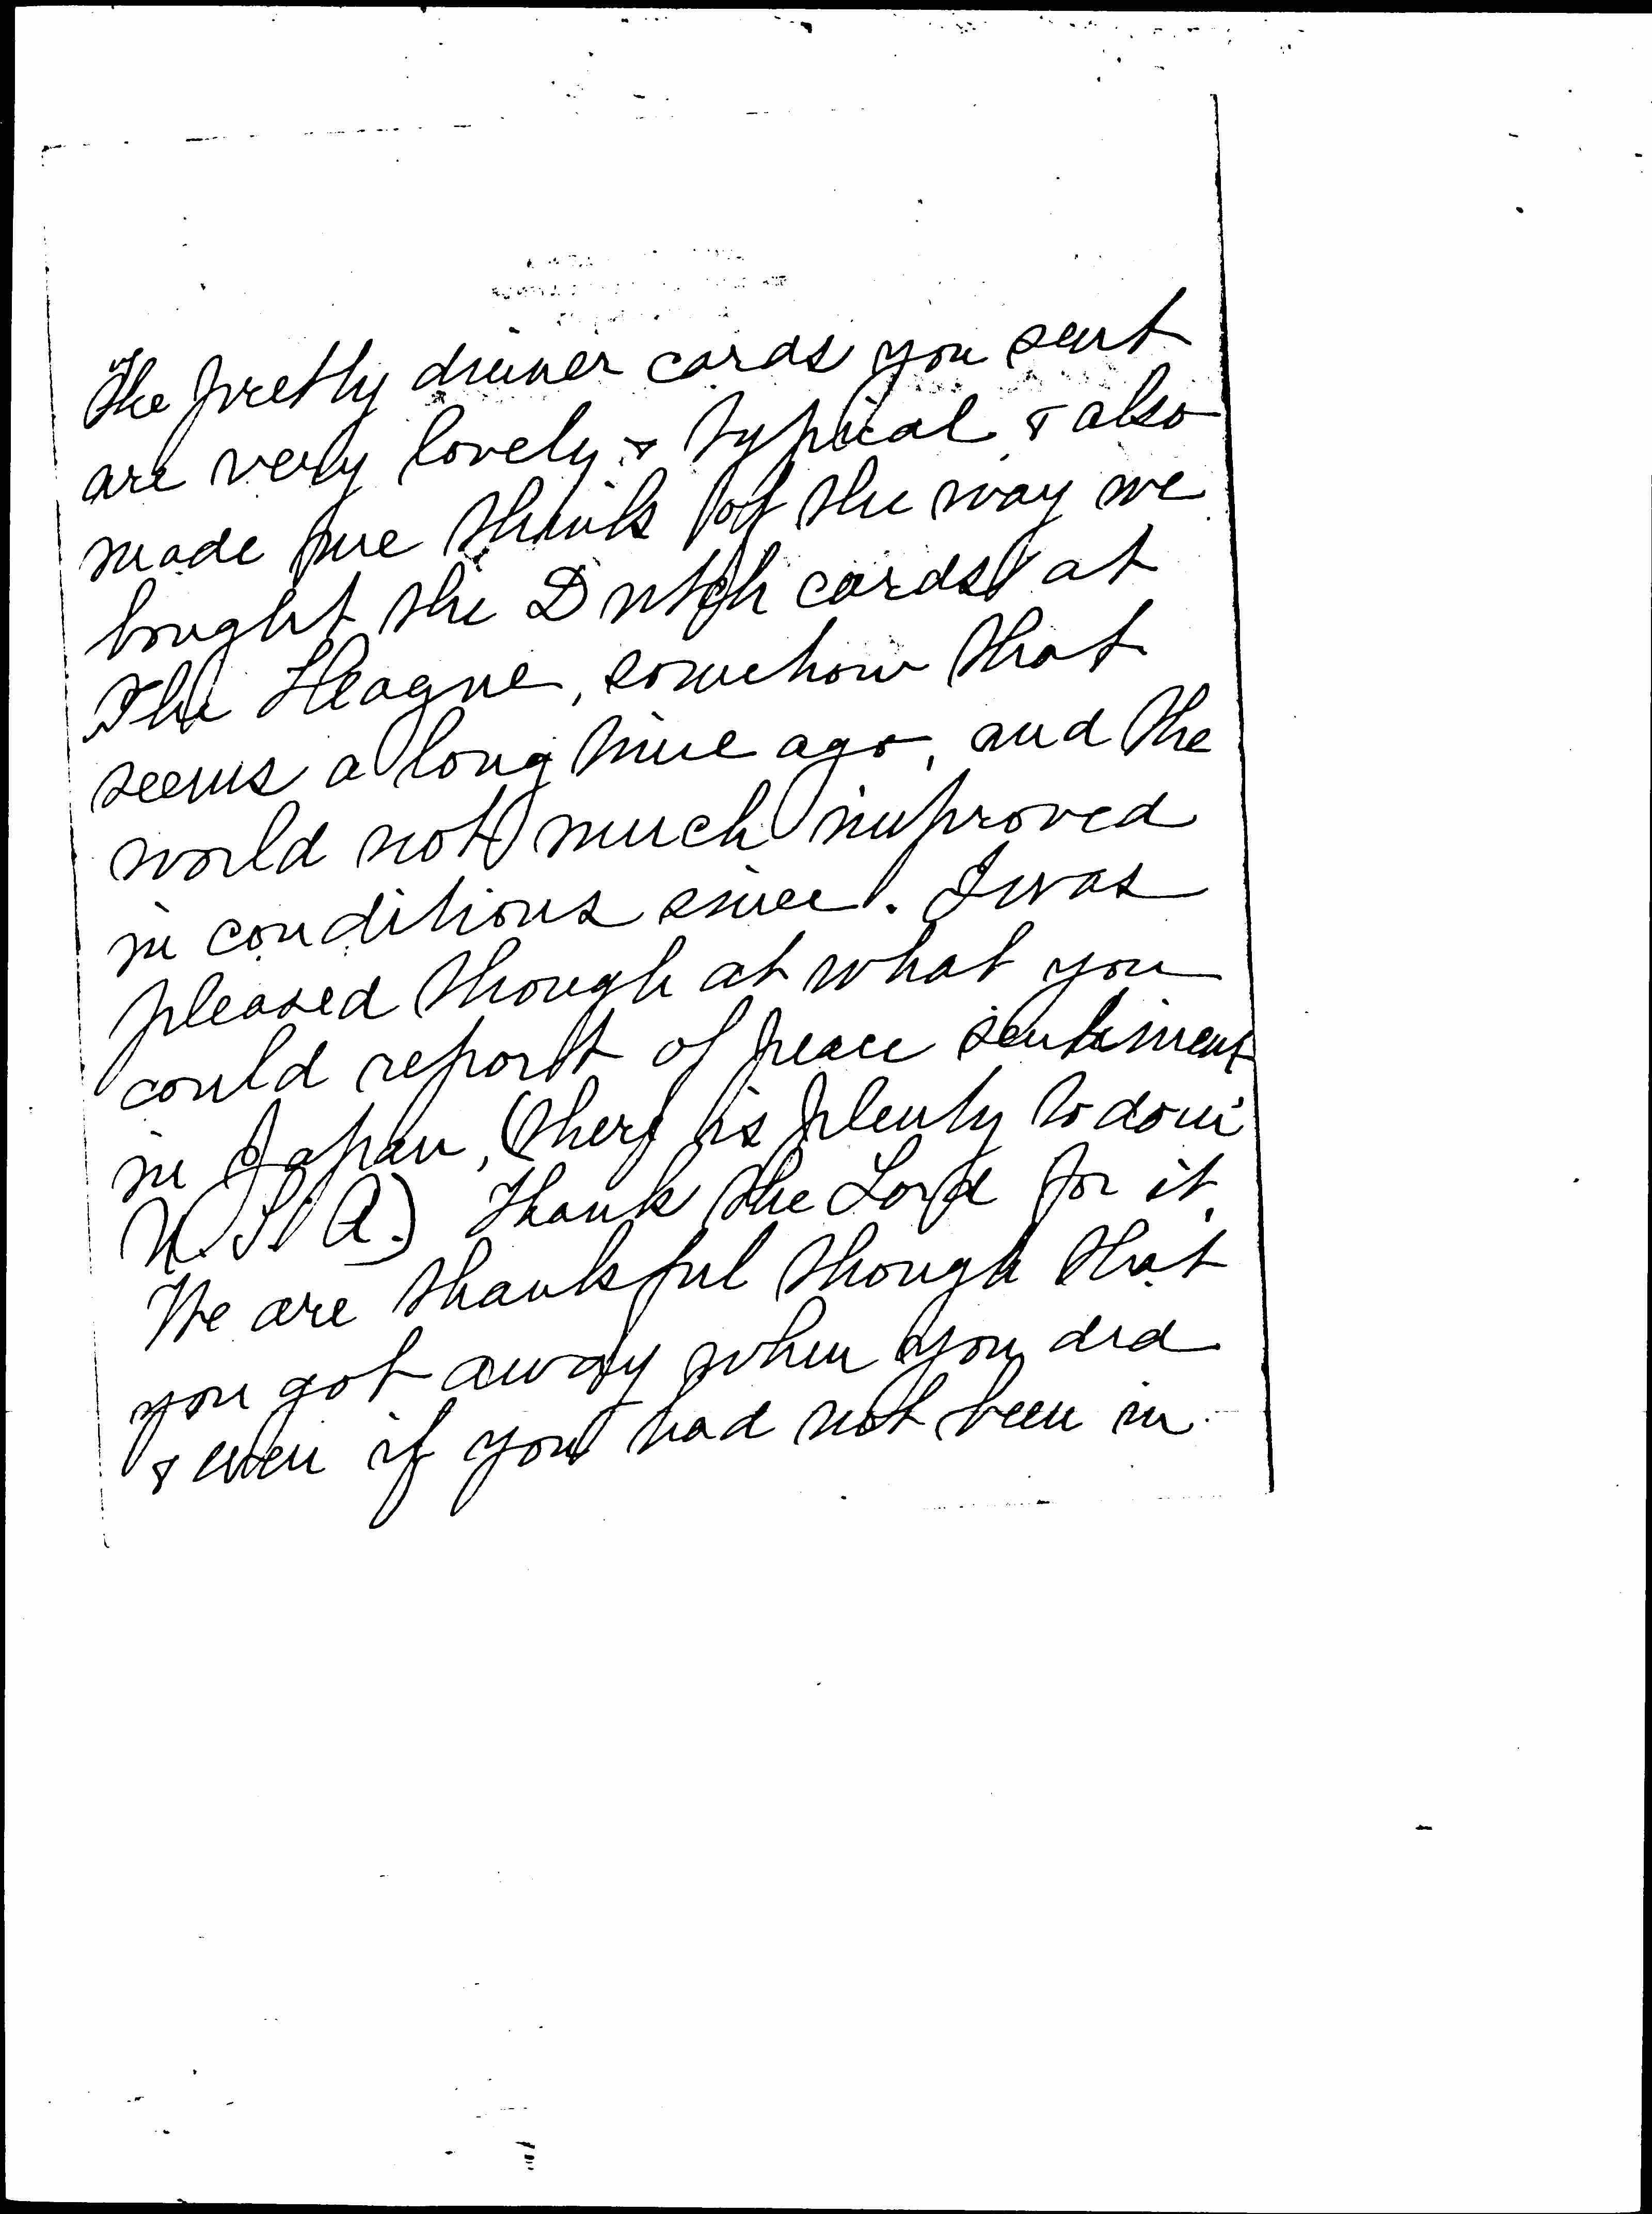 The pretty dinner cards you sent
are very lovely & typical & also
made me think of the way we
bought the Dutch cards at
The Hague, somehow that
seems a long time ago, and the
world not much improved
in conditions since. I was
pleased though at what you
could report of peace sentiment
in Japan, (there is plenty to do in
U.S.A.) Thank the Lord for it.
We are thankful though that
you got away when you did
& even if you had not been in